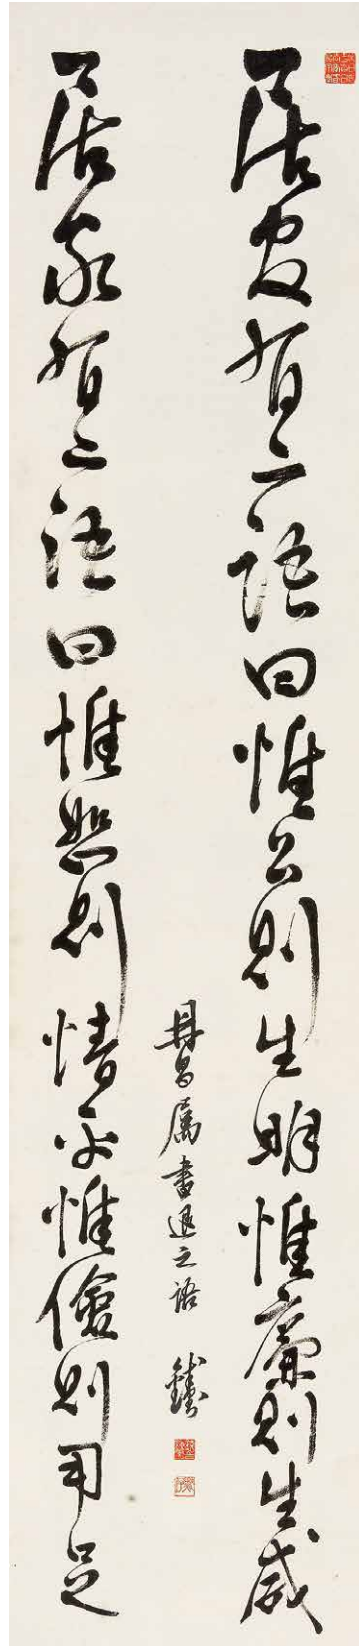 居官有二語曰惟公則生明惟廉則生威
居家有二語曰惟恕則情平惟儉則用足
昌属書之語